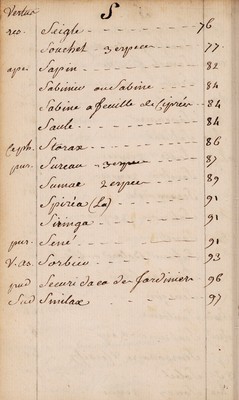 Vertus S
res. Seigle 76
Souchet 3 espece 77
ape. Sapin 82
Sabinier ou Sabine 84
Sabine a feuille de Ciprès 84
Saule 84
Ceph. Storax 86
pur. Sureau 3 espece 87
Sumac 2 espece 89
Spiréa (La) 91
Siringa 91
pur. Sené 91
V. as. Sorbier 93
Securidaca de Jardinier 96
Sud Smilax 97